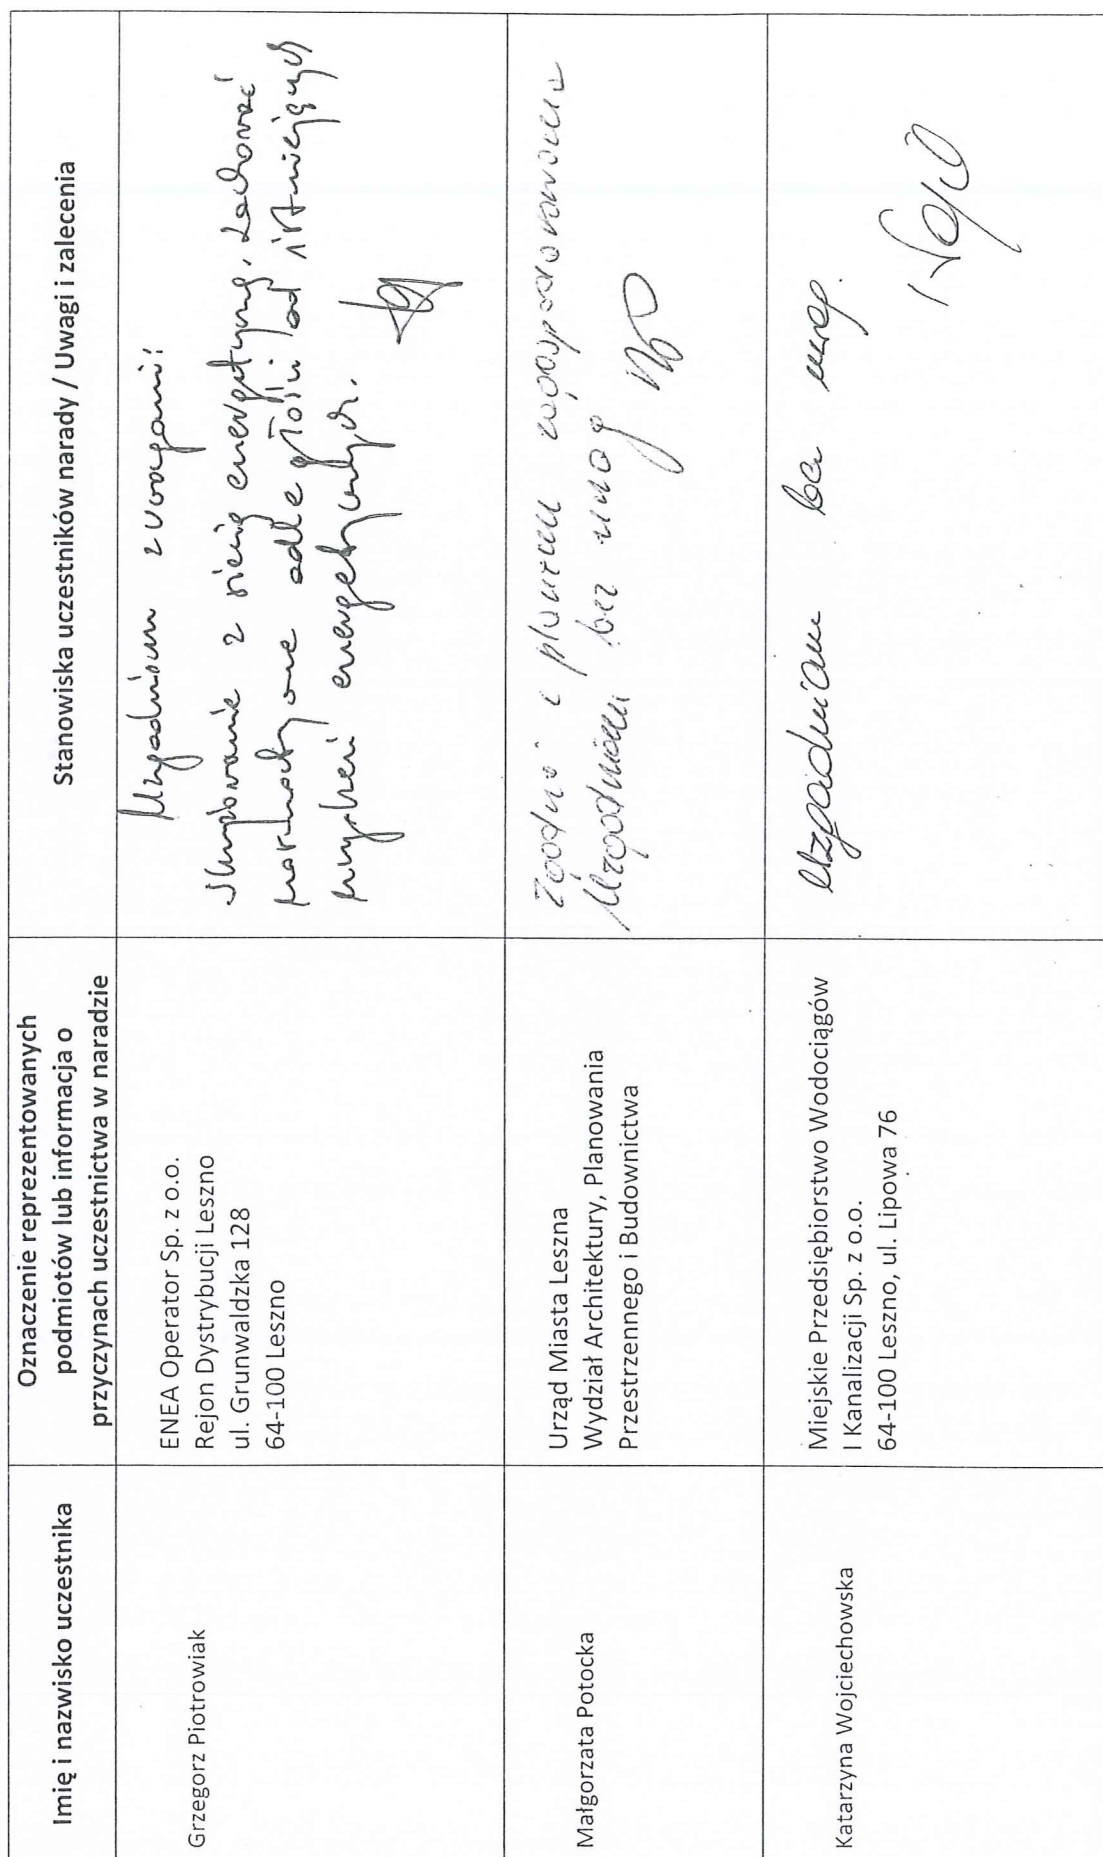 Imię i nazwisko uczestnika
Oznaczenie reprezentowanych
podmiotów lub informacja o
przyczynach uczestnictwa w naradzie
Stanowiska uczestników narady / Uwagi i zalecenia
Grzegorz Piotrowiak
ENEA Operator Sp. z o.o.
Rejon Dystrybucji Leszno
ul. Grunwaldzka 128
64-100 Leszno
Uzgadniam z uwagami:
z siecią energetyczną, zachować
odległości od istniejących
energetycznych.
Małgorzata Potocka
Urząd Miasta Leszna
Wydział Architektury, Planowania
Przestrzennego i Budownictwa
planem zagospodarowania
Uzgadniam bez uwag
Katarzyna Wojciechowska
Miejskie Przedsiębiorstwo Wodociągów
I Kanalizacji Sp. z o.o.
64-100 Leszno, ul. Lipowa 76
Uzgadniam bez uwag.